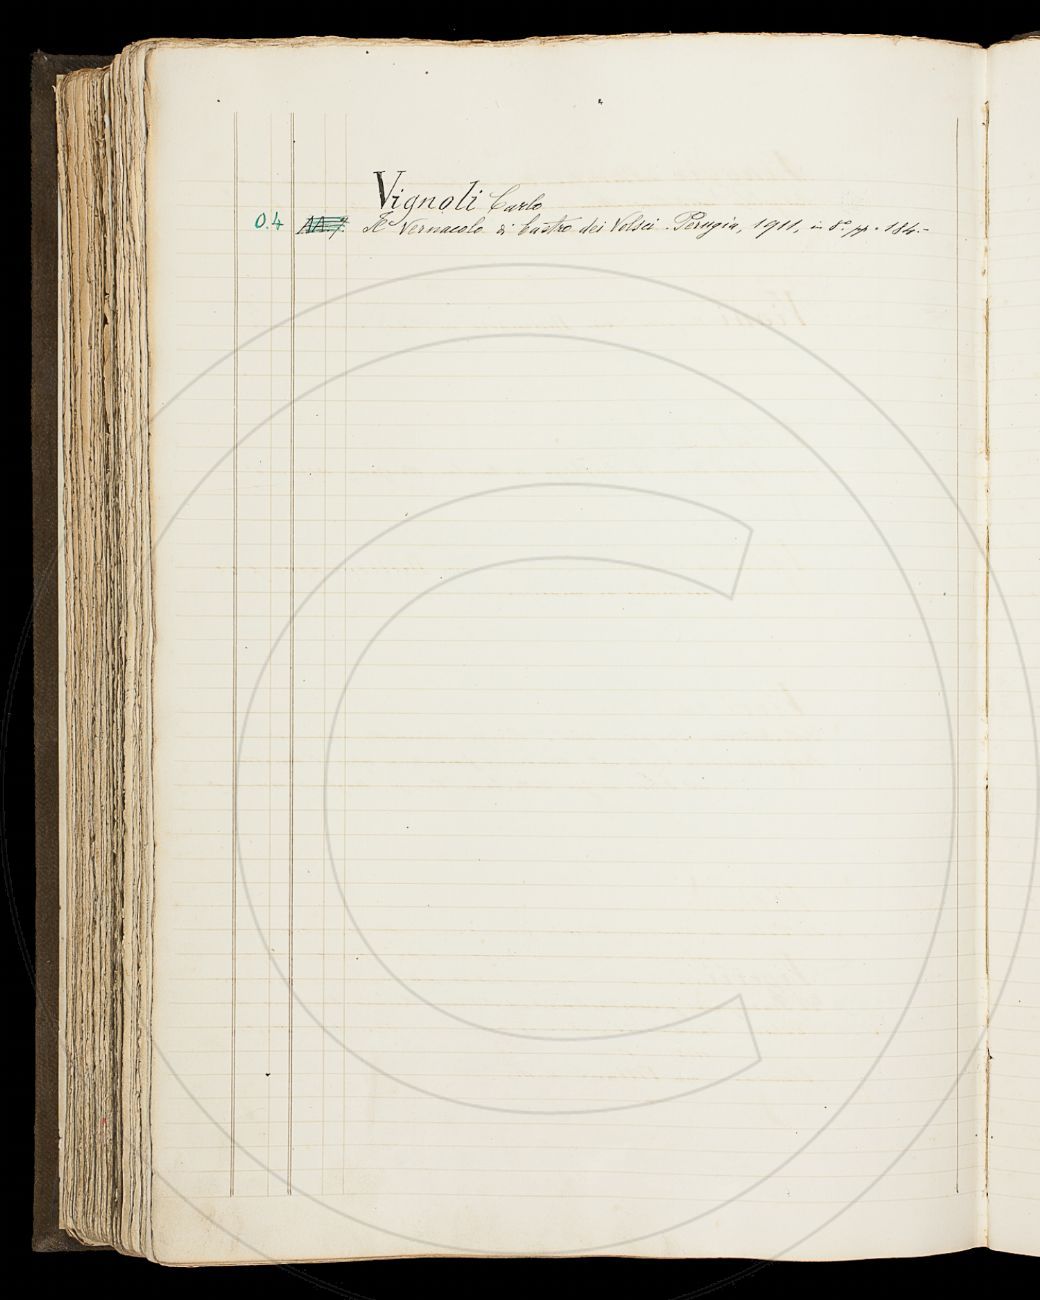 Vignoli Carlo
0.4 Il Vernacolo di Castro dei Volsci. Perugia, 1911, in 8º pp. 184.-